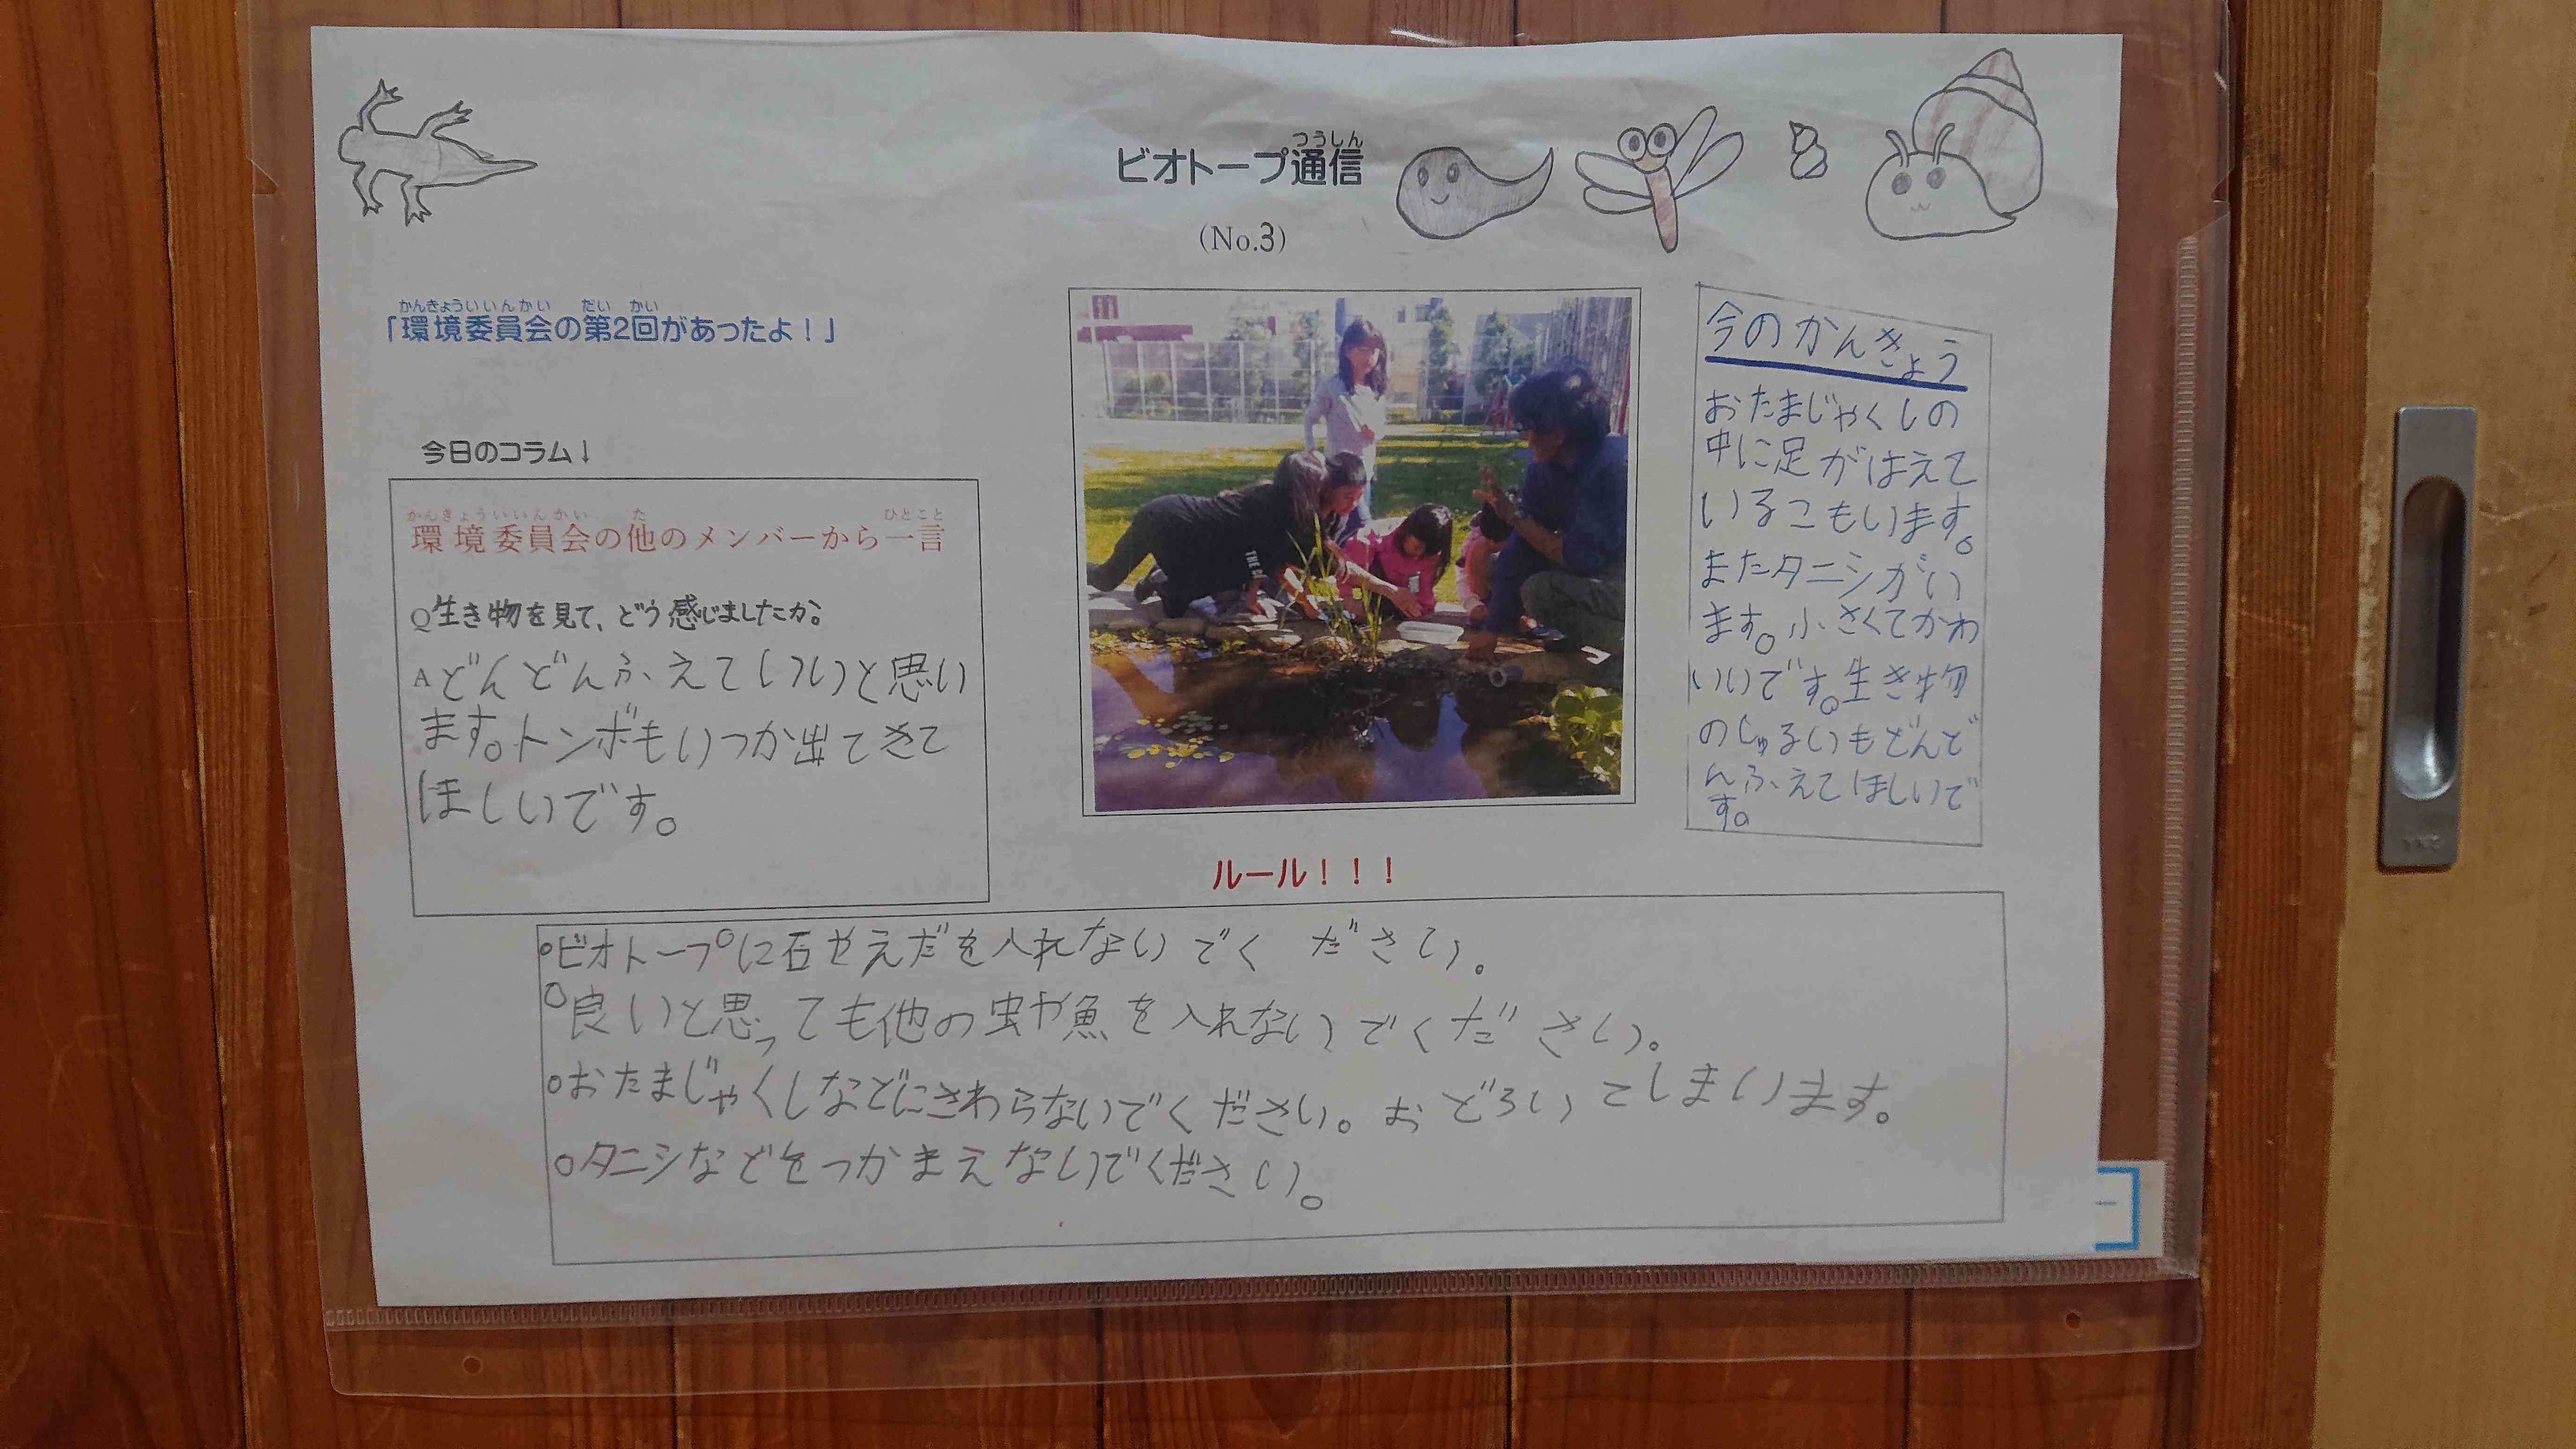 ビオトープ通信
つうしん
(No.3)
かんきょういいんかい だい かい
「環境委員会の第2回があったよ！」
今日のコラム↓
かんきょういいんかい た ひとこと
環境委員会の他のメンバーから一言
Q生き物を見て、どう感じましたか。
Aどんどんふえてしいと思い
ます。トンボもいつか出てきて
ほしいです。
今のかんきょう
おたまじゃくしの
中に足がはえて
いるこもいます。
またタニシがい
ます。小さくてかわ
いいです。生き物
のしゅるいもどんど
んふえてほしいで
す。
ルール！！！
○ビオトープに石やえだを入れないでください。
○良いと思っても他の虫や魚を入れないでください。
○おたまじゃくしなどにさわらないでください。おどろいてしまいます。
○タニシなどをつかまえないでください。